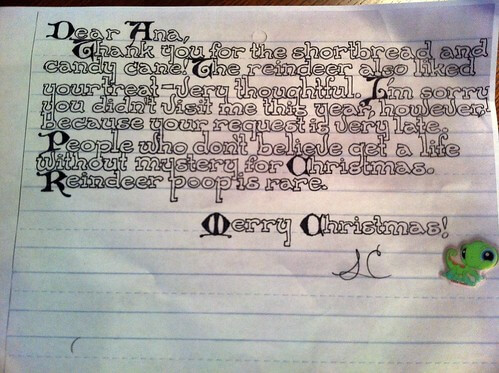 Dear Ana,
Thank you for the shortbread and
candy cane! The reindeer also liked
your treat - very thoughtful. I'm sorry
you didn't visit me this year, however,
because your request is very late.
People who don't believe get a life
without mystery for Christmas.
Reindeer poop is rare.
Merry Christmas!
SC